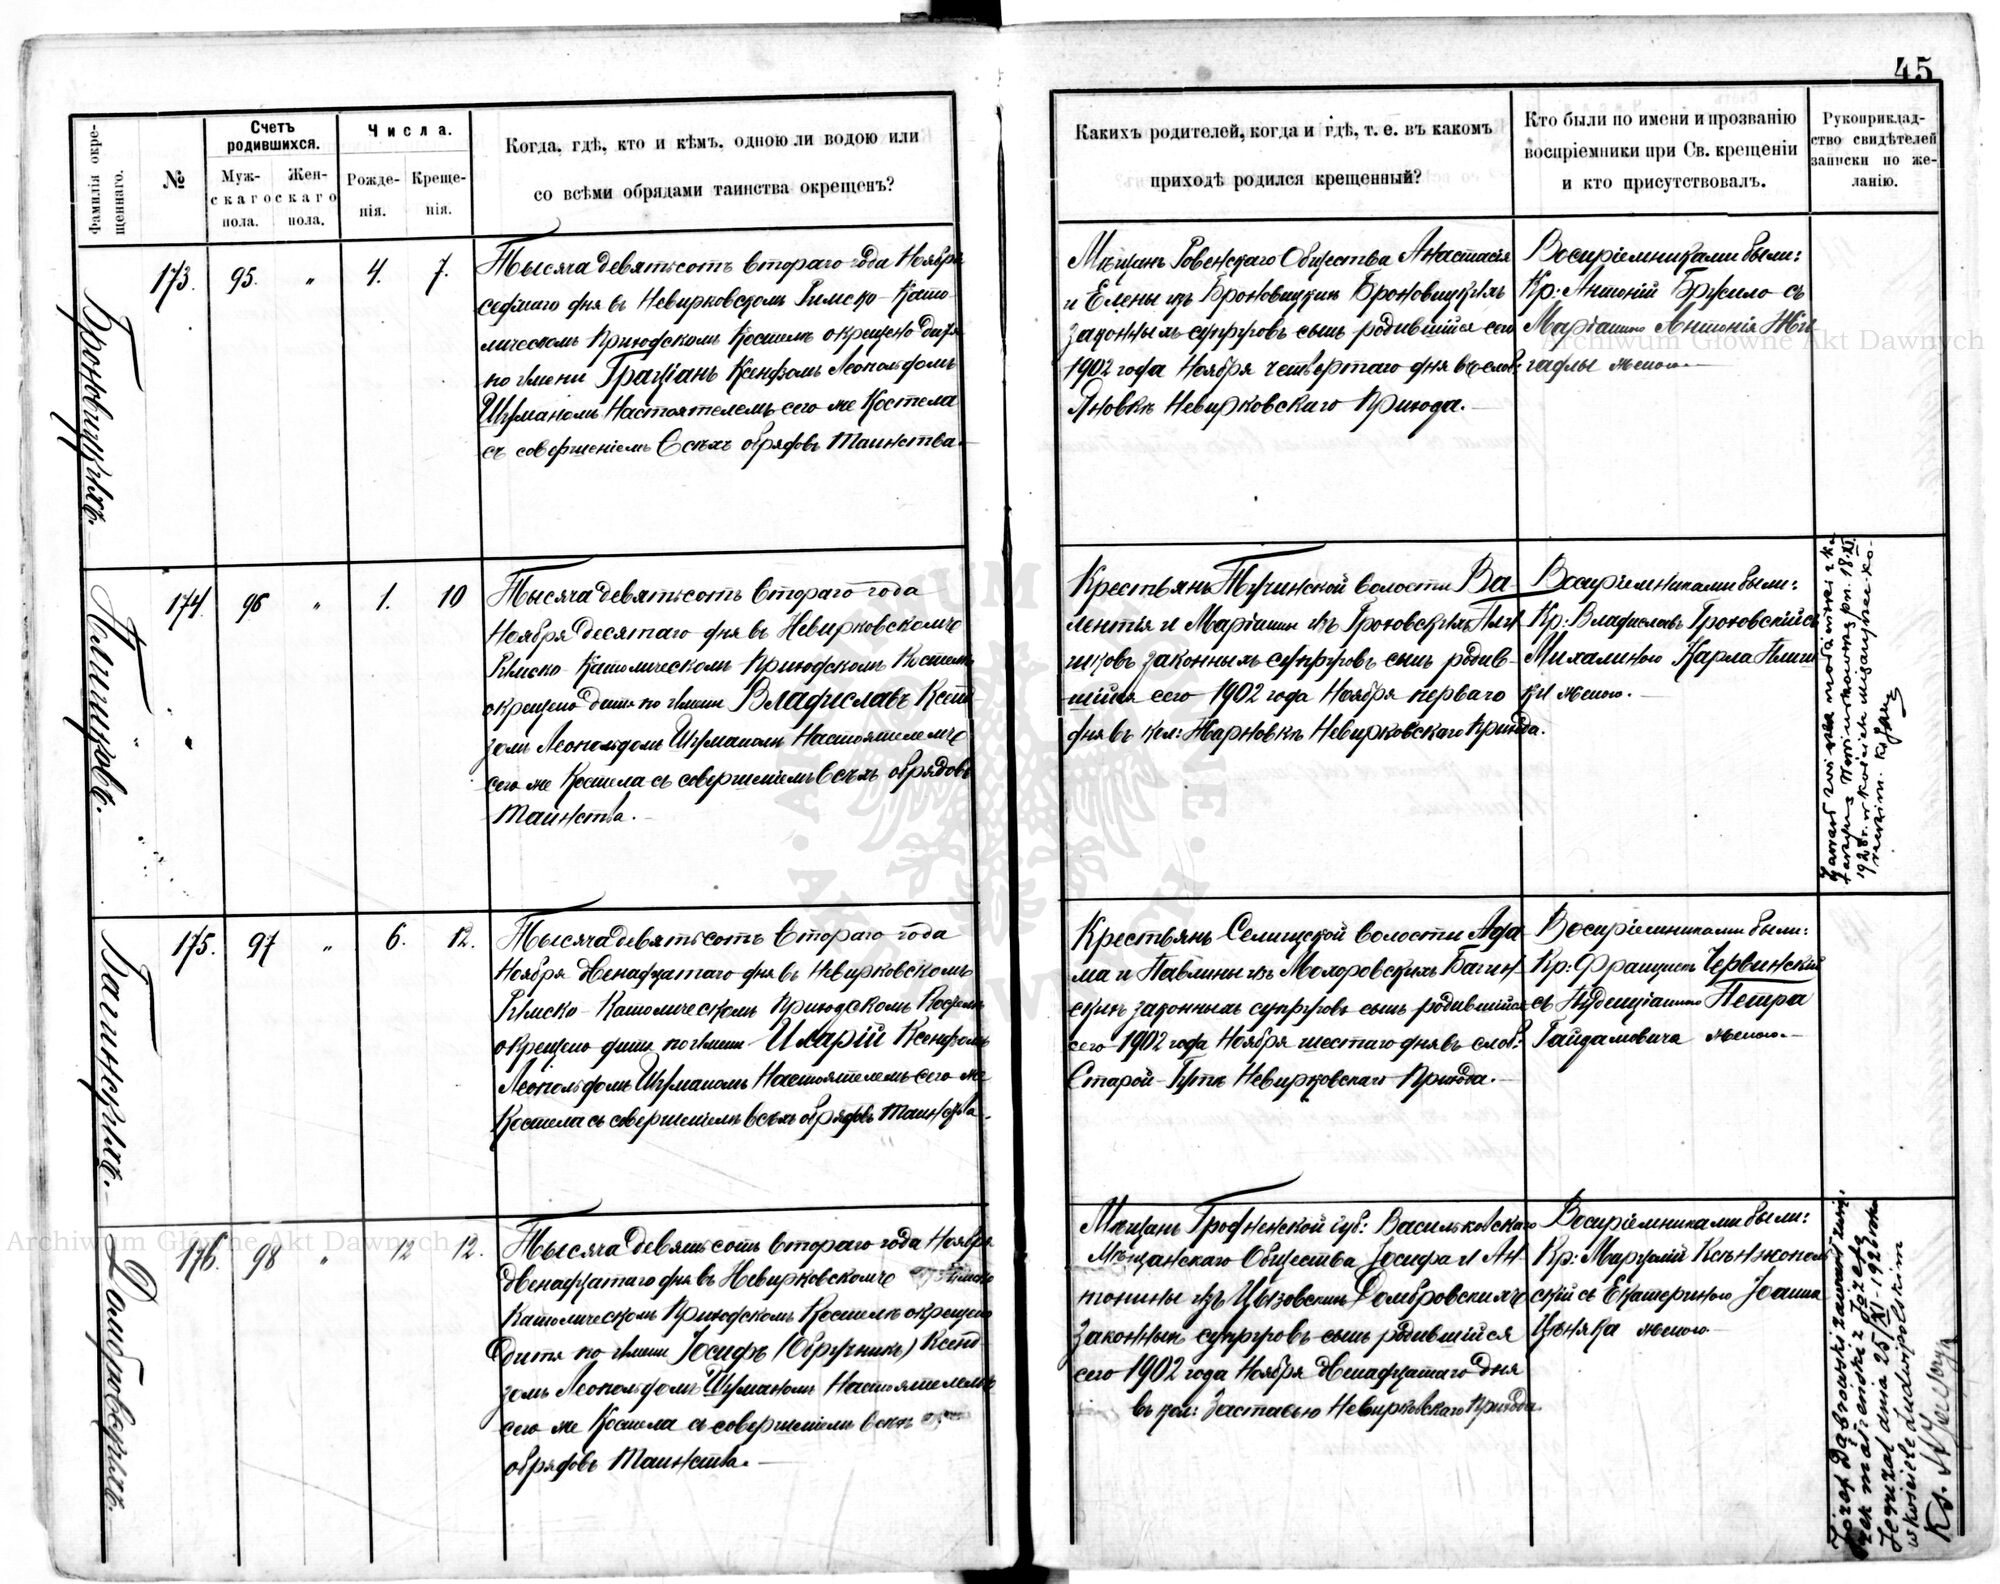 45
Фамилія окре-
щеннаго.
№
Счетъ
родившихся.
Муж-
скаго
пола.
Жен-
скаго
пола.
Числа.
Рожде-
нія.
Креще-
нія.
Когда, гдѣ, кто и кѣмъ, одною ли водою или
со всѣми обрядами таинства окрещенъ?
Какихъ родителей, когда и гдѣ, т. е. въ какомъ
приходѣ родился крещенный?
Кто были по имени и прозванію
воспріемники при Св. крещеніи
и кто присутствовалъ.
Рукоприклад-
ство свидѣтелей
записки по же-
ланію.
Броновицкихъ.
173.
95.
"
4.
7.
Тысяча девятьсотъ втораго года Ноября
седьмаго дня въ Невирковскомъ Римско-Като-
лическомъ Приходскомъ Костелѣ окрещено дитя
по имени Граціанъ Ксендзомъ Леопольдомъ
Шуманомъ Настоятелемъ сего же Костела
съ совершеніемъ всѣхъ обрядовъ Таинства.
Мѣщанъ Ровенскаго Общества Анастасія
и Елены изъ Броновицкихъ Броновицкихъ
законныхъ супруговъ сынъ родившійся сего
1902 года Ноября четвертаго дня въ слоб:
Яновкѣ Невирковскаго Прихода.
Воспріемниками были:
Кр: Антоній Бржило съ
Маріанною Антонія
женою.
174.
96
"
1.
10
Тысяча девятьсотъ втораго года
Ноября десятаго дня въ Невирковскомъ
Римско-Католическомъ Приходскомъ Костелѣ
окрещено дитя по имени Владиславъ Ксенд-
зомъ Леопольдомъ Шуманомъ Настоятелемъ
сего же Костела съ совершеніемъ всѣхъ обрядовъ
Таинства.
Крестьянъ Тучинской волости Ва-
лентія и Маріанны изъ Гроховскихъ
законныхъ супруговъ сынъ родив-
шійся сего 1902 года Ноября перваго
дня въ кол: Жарновкѣ Невирковскаго Прихода.
Воспріемниками были:
Кр: Владиславъ Гроховскій съ
Михалиною Карла
женою.
1928 r. w kościele
Багинскихъ.
175.
97
"
6.
12.
Тысяча девятьсотъ втораго года
Ноября двенадцатаго дня въ Невирковскомъ
Римско-Католическомъ Приходскомъ Костелѣ
окрещено дитя по имени Иларій Ксендзомъ
Леопольдомъ Шуманомъ Настоятелемъ сего же
Костела съ совершеніемъ всѣхъ обрядовъ Таинства.
Крестьянъ Селищской волости Ада-
ма и Павлины изъ Мохоровскихъ Багин-
скихъ законныхъ супруговъ сынъ родившійся
сего 1902 года Ноября шестаго дня въ слоб:
Старой-Гутѣ Невирковскаго Прихода.
Воспріемниками были:
Кр: Францискъ Червинскій
съ Пуденціанною Петра
Гайдамовича женою.
Домбровскихъ.
176.
98
"
12
12.
Тысяча девятьсотъ втораго года Ноября
двенадцатаго дня въ Невирковскомъ Римско
Католическомъ Приходскомъ Костелѣ окрещено
дитя по имени Іосифъ (Обручникъ) Ксенд-
зомъ Леопольдомъ Шуманомъ Настоятелемъ
сего же Костела съ совершеніемъ всѣхъ
обрядовъ Таинства.
Мѣщанъ Гродненской губ: Васильковскаго
Мѣщанскаго Общества Іосифа и Ан-
тонины изъ Домбровскихъ
законныхъ супруговъ сынъ родившійся
сего 1902 года Ноября двенадцатаго дня
въ кол: Заставью Невирковскаго Прихода.
Воспріемниками были:
Кр: Марцелій Ксѣнжополь-
скій съ Екатериною Іоанна
женою.
Józef Dąbrowski zawarł związ-
ek małżeński z Józefą
dnia 25/XI-1926 roku
w kościele Ludwipolskim
Ks.
Archiwum Główne Akt Dawnych
Archiwum Główne Akt Dawnych